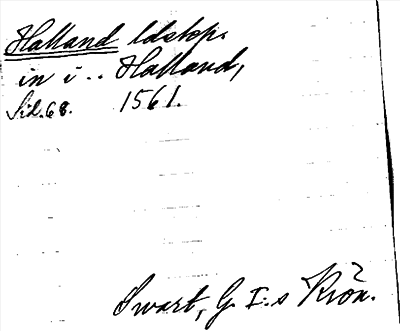 Halland ldskp.
in i .. Halland,
Sid. 68. 1561.
Swart, G. I:s Krön.